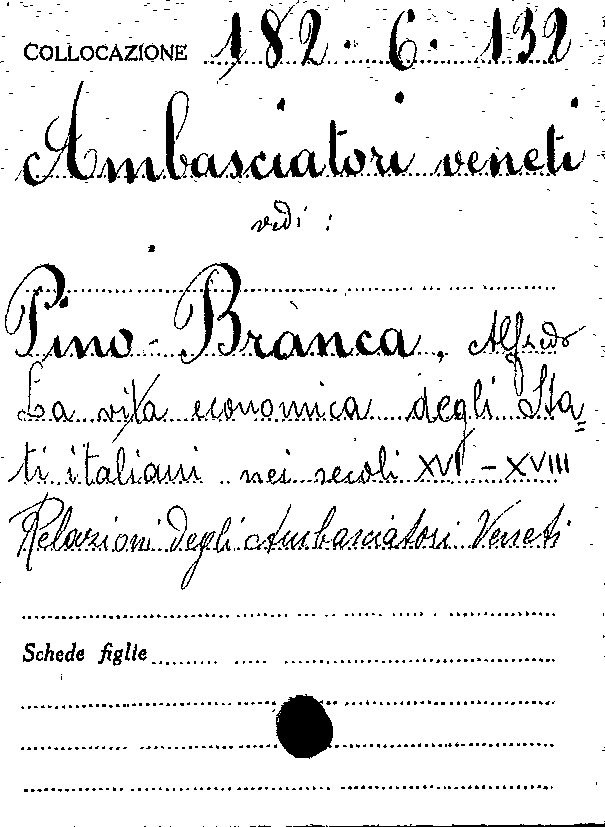 COLLOCAZIONE 182. 6. 132
Ambasciatori veneti
vedi :
Pino-Brànca, Alfredo
La vita economica degli Sta=
ti italiani nei secoli XVI – XVIII
Relazioni degli Ambasciatori Veneti
Schede figlie